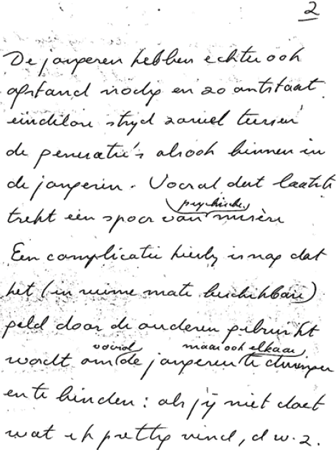 2
De jongeren hebben echter ook
afstand nodig en zo ontstaat
eindeloze strijd zowel tussen
de generatie's alsook binnen in
de jongeren. Vooral dat laatste
psychische
trekt een spoor van misère
Een complicatie hierbij is nog dat
het (in ruime mate beschikbare)
geld door de ouderen gebruikt
vooral maar ook elkaar
wordt om de jongeren te dwingen
en te binden: als jij niet doet
wat ik prettig vind, d.w.z.